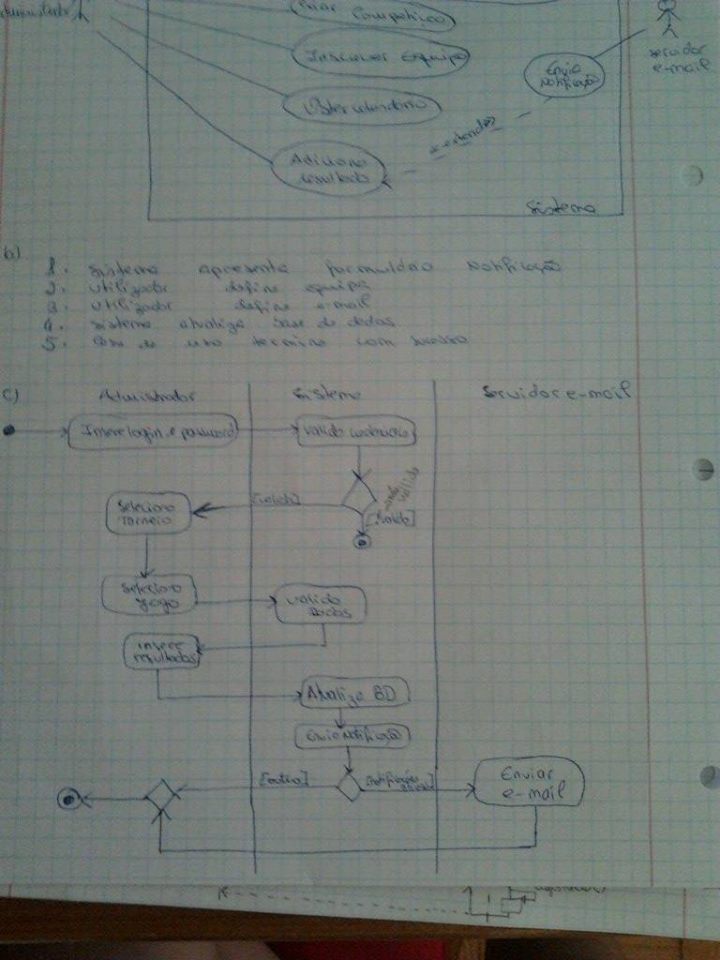 Criar Competição
Inscrever Equipa
Obter calendário
Adiciona
resultado
Envia
Notificação
Servidor
e-mail
Sistema
b)
1. Sistema apresenta formulário Notificação
2. utilizador define equipa
3. utilizador define e-mail
4. Sistema atualiza base de dados
5. Caso de uso termina com sucesso
c)
Administrador
Sistema
Servidor e-mail
Insere login e password
[válido]
Seleciona
Torneio
Seleciona
Jogo
valida
Dados
insere
resultados
Atualiza BD
Envia Notificação
[outro]
[notificação
Enviar
e-mail